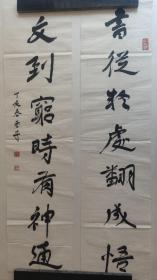 書從疑處翻成悟
文到窮時有神通
丁亥冬